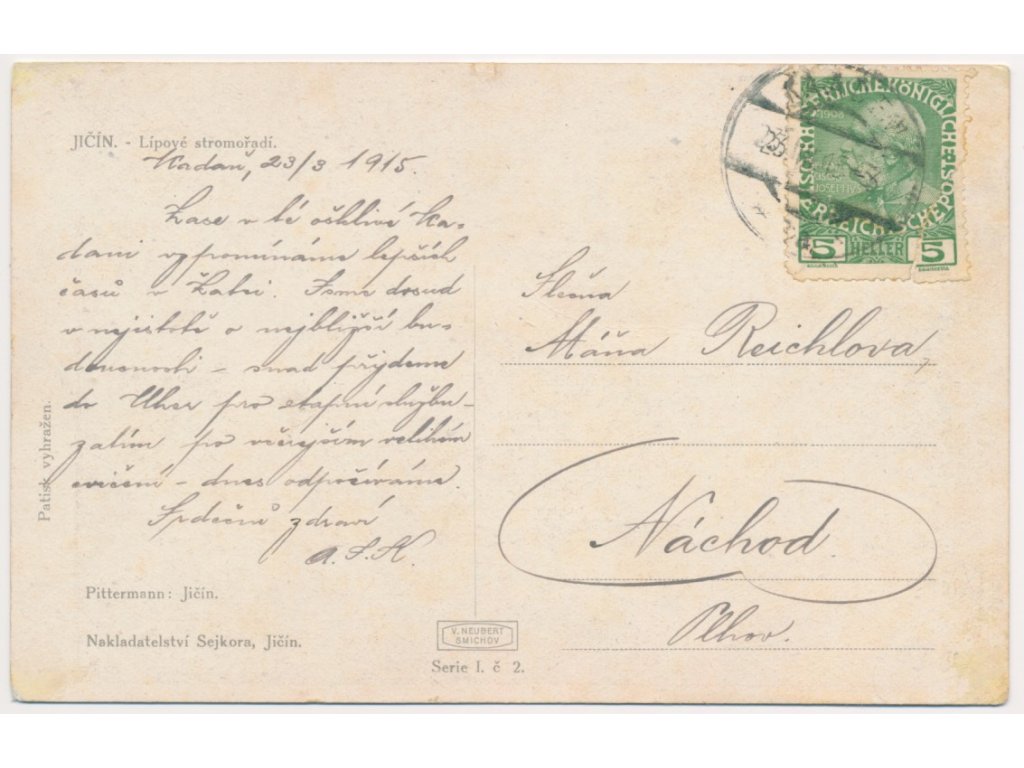 JIČÍN. - Lípové stromořadí.
Kadaň, 23/3 1915.
Zase v té ošklivé Ka-
dani vzpomínáme lepších
časů v Žatci. Jsme dosud
v nejistotě o nejbližší bu-
doucnosti - snad přijdeme
do Uher pro etapní službu -
zatím po včerejším velikém
cvičení - dnes odpočíváme.
Srdečně zdraví
Patisk vyhražen.
Pittermann: Jičín.
Nakladatelství Sejkora, Jičín.
V. NEUBERT
SMÍCHOV
Serie I. č 2.
1908
5 HELLER 5
Slečna
Máňa Reichlova,
Náchod.
Plhov.